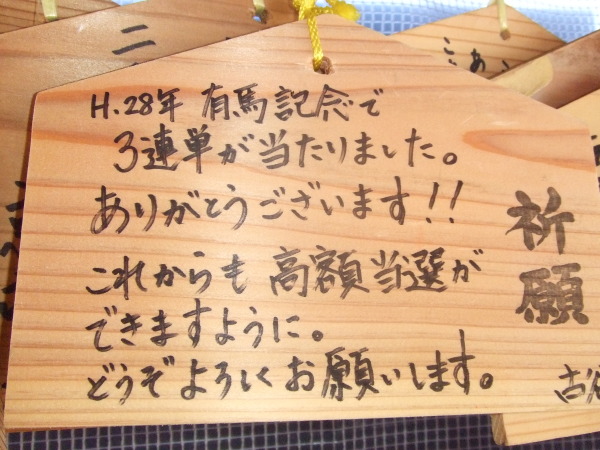 H.28年 有馬記念で
3連単が当たりました。
ありがとうございます!!
これからも 高額当選が
できますように。
どうぞよろしくお願いします。
祈願